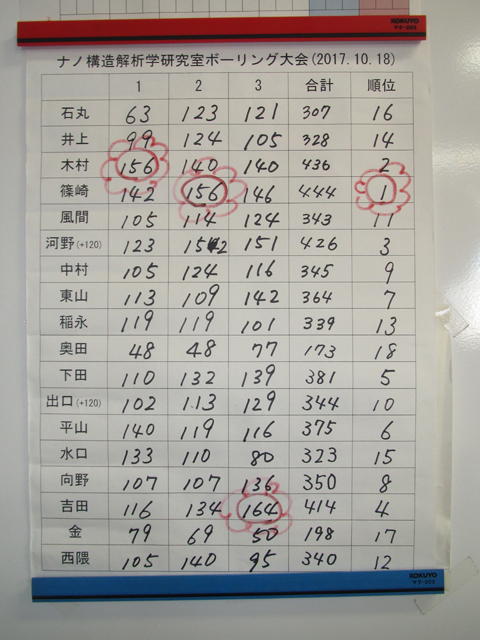 KOKUYO
ナノ構造解析学研究室ボーリング大会(2017.10.18)
1 2 3 合計 順位
石丸 63 123 121 307 16
井上 99 124 105 328 14
木村 156 140 140 436 2
篠崎 142 156 146 444 1
風間 105 114 124 343 11
河野(+120) 123 152 151 426 3
中村 105 124 116 345 9
東山 113 109 142 364 7
稲永 119 119 101 339 13
奥田 48 48 77 173 18
下田 110 132 139 381 5
出口(+120) 102 113 129 344 10
平山 140 119 116 375 6
水口 133 110 80 323 15
向野 107 107 136 350 8
吉田 116 134 164 414 4
金 79 69 50 198 17
西隈 105 140 95 340 12
KOKUYO